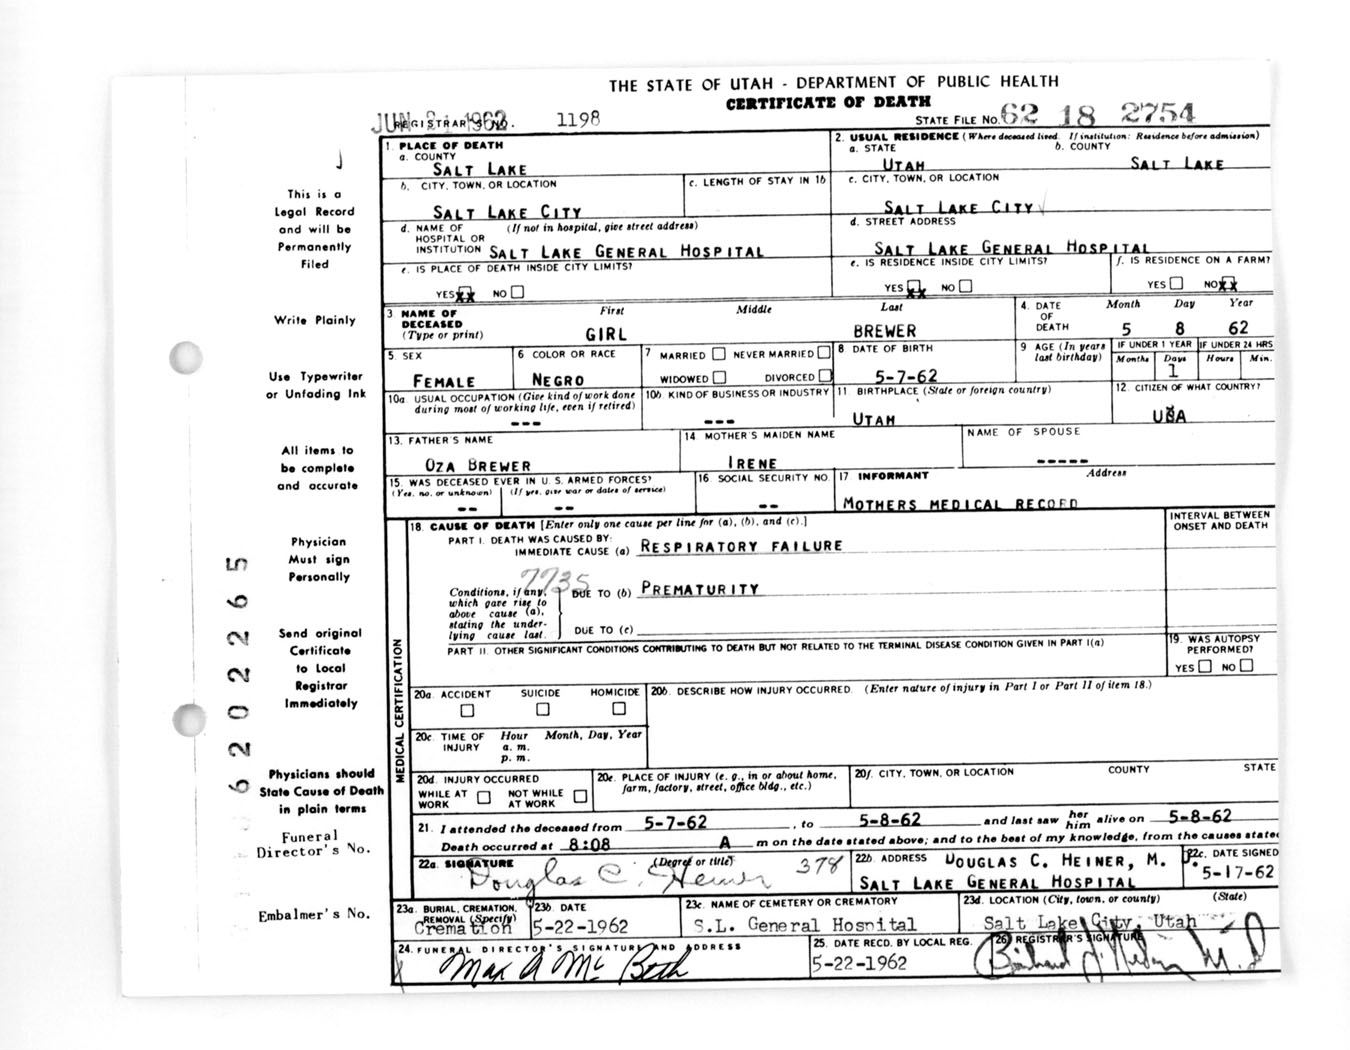 THE STATE OF UTAH - DEPARTMENT OF PUBLIC HEALTH
CERTIFICATE OF DEATH
JUN 21 1962 REGISTRAR'S NO. 1198 STATE FILE No. 62 18 2754
1. PLACE OF DEATH
a. COUNTY
SALT LAKE
2. USUAL RESIDENCE (Where deceased lived. If institution: Residence before admission)
a. STATE b. COUNTY
UTAH SALT LAKE
b. CITY, TOWN, OR LOCATION c. LENGTH OF STAY IN 1b
SALT LAKE CITY
c. CITY, TOWN, OR LOCATION
SALT LAKE CITY
d. NAME OF HOSPITAL OR INSTITUTION (If not in hospital, give street address)
SALT LAKE GENERAL HOSPITAL
d. STREET ADDRESS
SALT LAKE GENERAL HOSPITAL
e. IS PLACE OF DEATH INSIDE CITY LIMITS?
YES XX NO
e. IS RESIDENCE INSIDE CITY LIMITS?
YES XX NO
f. IS RESIDENCE ON A FARM?
YES NO XX
3 NAME OF DECEASED (Type or print) First Middle Last
GIRL BREWER
4. DATE OF DEATH Month Day Year
5 8 62
5. SEX
FEMALE
6 COLOR OR RACE
NEGRO
7 MARRIED NEVER MARRIED
WIDOWED DIVORCED
8 DATE OF BIRTH
5-7-62
9 AGE (In years last birthday)
IF UNDER 1 YEAR IF UNDER 24 HRS
Months Days Hours Min.
1
10a. USUAL OCCUPATION (Give kind of work done during most of working life, even if retired)
---
10b. KIND OF BUSINESS OR INDUSTRY
---
11. BIRTHPLACE (State or foreign country)
UTAH
12. CITIZEN OF WHAT COUNTRY?
USA
13. FATHER'S NAME
OZA BREWER
14 MOTHER'S MAIDEN NAME
IRENE
NAME OF SPOUSE
-----
15. WAS DECEASED EVER IN U. S. ARMED FORCES?
(Yes, no, or unknown) (If yes, give war or dates of service)
-- --
16. SOCIAL SECURITY NO.
--
17 INFORMANT Address
MOTHERS MEDICAL RECORD
MEDICAL CERTIFICATION
18. CAUSE OF DEATH [Enter only one cause per line for (a), (b), and (c).]
INTERVAL BETWEEN ONSET AND DEATH
PART I. DEATH WAS CAUSED BY:
IMMEDIATE CAUSE (a) RESPIRATORY FAILURE
7735
Conditions, if any, which gave rise to above cause (a), stating the underlying cause last.
DUE TO (b) PREMATURITY
DUE TO (c)
PART II. OTHER SIGNIFICANT CONDITIONS CONTRIBUTING TO DEATH BUT NOT RELATED TO THE TERMINAL DISEASE CONDITION GIVEN IN PART I(a)
19. WAS AUTOPSY PERFORMED?
YES NO
20a. ACCIDENT SUICIDE HOMICIDE
20b. DESCRIBE HOW INJURY OCCURRED. (Enter nature of injury in Part I or Part II of item 18.)
20c. TIME OF INJURY Hour Month, Day, Year
a. m.
p. m.
20d. INJURY OCCURRED
WHILE AT WORK NOT WHILE AT WORK
20e. PLACE OF INJURY (e. g., in or about home, farm, factory, street, office bldg., etc.)
20f. CITY, TOWN, OR LOCATION COUNTY STATE
21. I attended the deceased from 5-7-62, to 5-8-62 and last saw her him alive on 5-8-62
Death occurred at 8:08 A m on the date stated above; and to the best of my knowledge, from the causes stated
22a. SIGNATURE (Degree or title)
Douglas C. Heiner 378
22b. ADDRESS DOUGLAS C. HEINER, M.
SALT LAKE GENERAL HOSPITAL
22c. DATE SIGNED
5-17-62
23a. BURIAL, CREMATION, REMOVAL (Specify)
Cremation
23b. DATE
5-22-1962
23c. NAME OF CEMETERY OR CREMATORY
S.L. General Hospital
23d. LOCATION (City, town, or county) (State)
Salt Lake City, Utah
24. FUNERAL DIRECTOR'S SIGNATURE AND ADDRESS
Max A McBeth
25. DATE RECD. BY LOCAL REG.
5-22-1962
26 REGISTRAR'S SIGNATURE
M.D
This is a
Legal Record
and will be
Permanently
Filed
Write Plainly
Use Typewriter
or Unfading Ink
All items to
be complete
and accurate
Physician
Must sign
Personally
Send original
Certificate
to Local
Registrar
Immediately
Physicians should
State Cause of Death
in plain terms
Funeral
Director's No.
Embalmer's No.
62022265